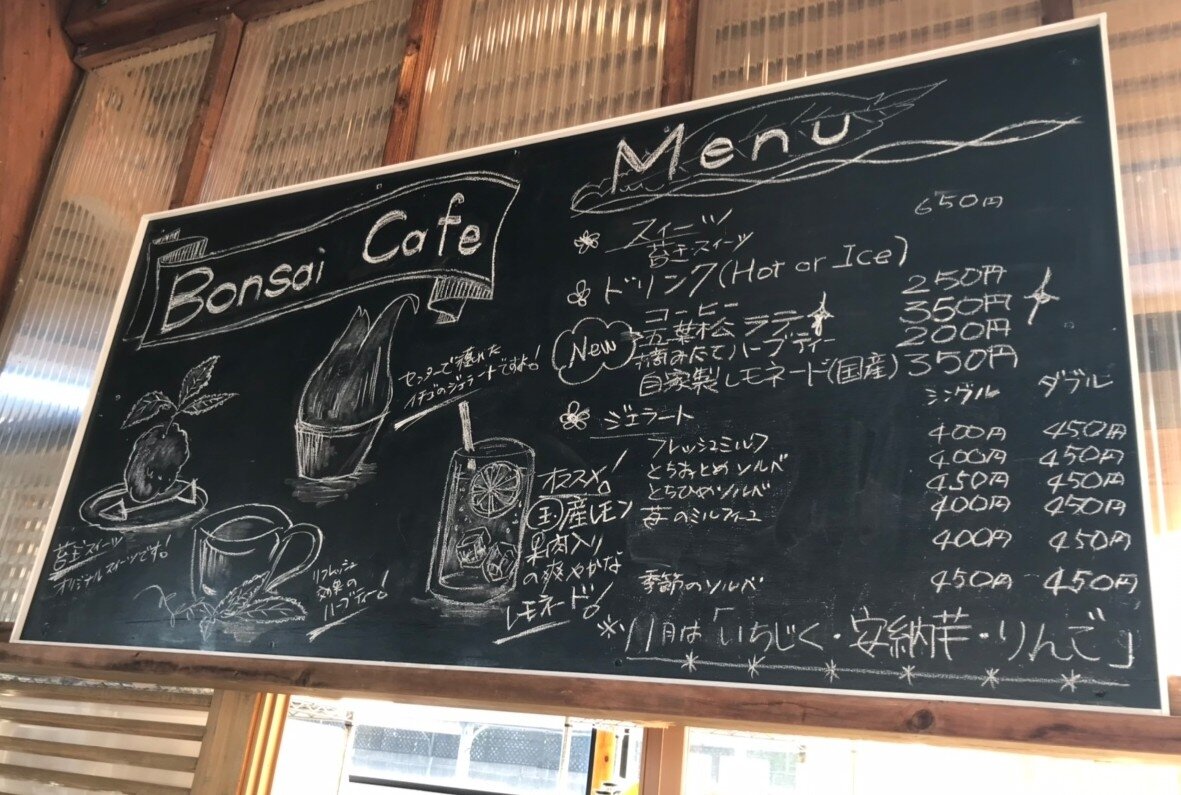 Bonsai Cafe
センターで穫れた
イチゴのジェラートですよ!
苔玉スイーツ
オリジナルスイーツです!
リフレッシュ
効果の
ハーブティー!
オススメ!
国産レモン
果肉入り
の爽やかな
レモネード!
Menu
スイーツ
苔玉スイーツ 650円
ドリンク(Hot or Ice)
コーヒー 250円
New 五葉松ラテ 350円
摘みたてハーブティー 200円
自家製レモネード(国産) 350円
ジェラート シングル ダブル
フレッシュミルク 400円 450円
とちおとめソルベ 400円 450円
とちひめソルベ 450円 450円
苺のミルフィーユ 400円 450円
400円 450円
季節のソルベ 450円 450円
※11月は「いちじく・安納芋・りんご」